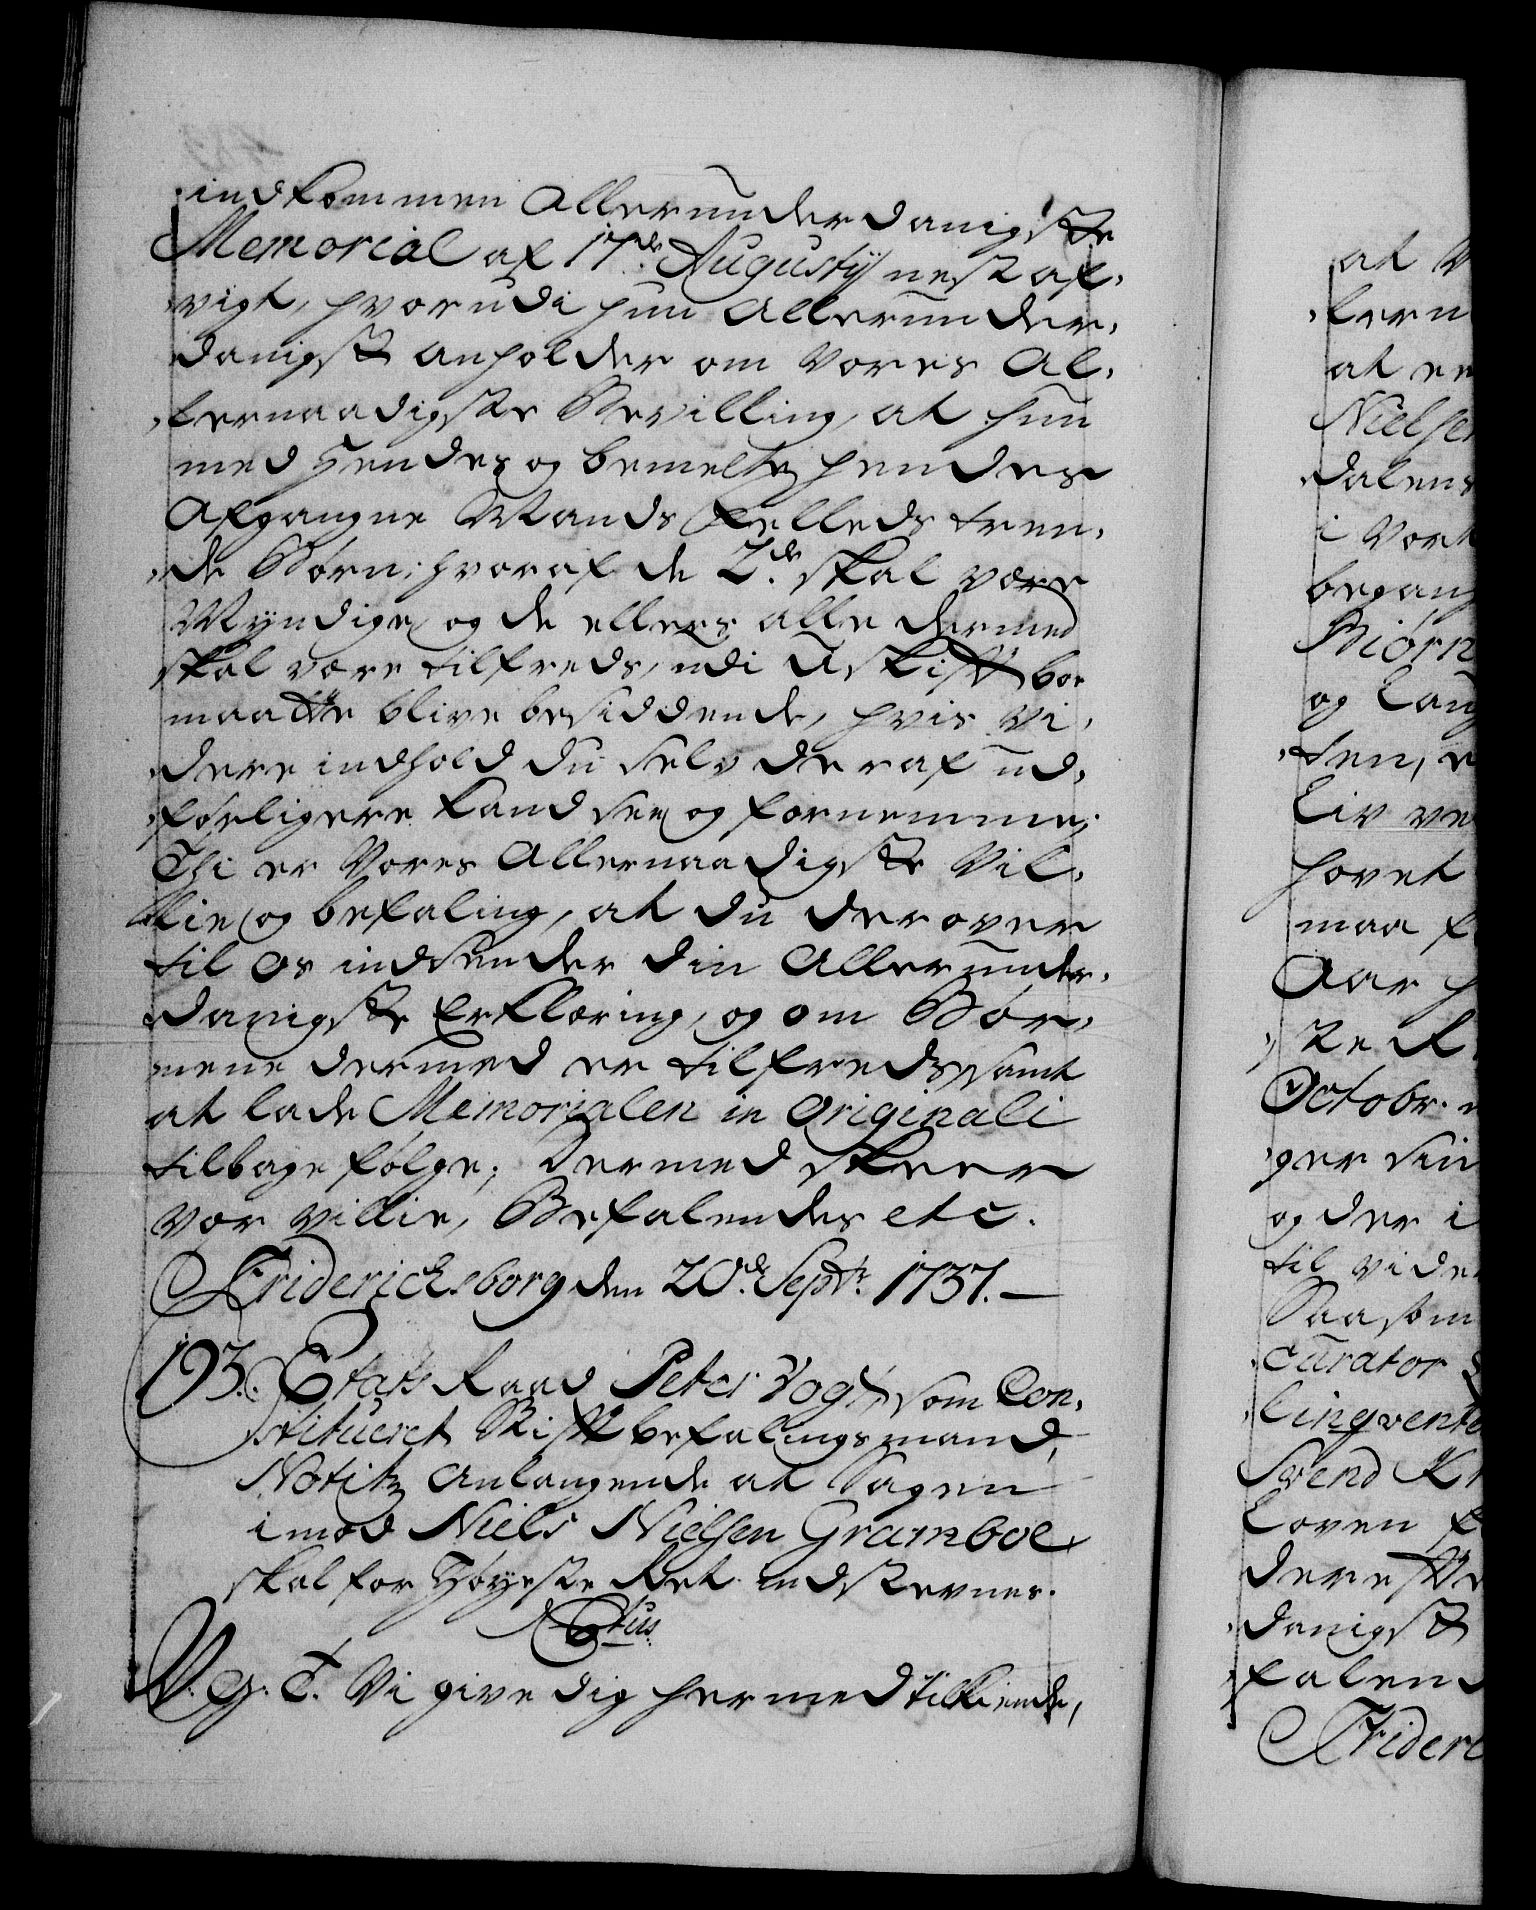 indkommen Allerunderdanigste
Memorial af 17de Augustij nestaf,
vigt, hvorudi hun Allerunder,
danigst anholder om Vores Al,
lernaadigste Bevilling, at hun
med Hendes og bemelte hendes
Afgangne Mands Felleds tren,
de Børn, hvoraf de 2de skal være
Myndige, og de ellers alle dermed
skal være tilfreds, udi Uskift boe
maatte blive besiddende, hvis Vi,
dere indhold du selv deraf ud,
førligere kand see og fornemme;
Thi er Vores Allernaadigste Vil,
lie og befaling, at du derover
til Os indsender din Allerunder,
danigste Erklæring, og om Bør,
nene dermed er tilfreds, samt
at lade Memorialen in Originali
tilbage følge; Dermed skeer
Vor Villie, Befalendes etc.
Friderichsborg den 20de Septr. 1737.
193. Etats Raad Peter Vogt, som Con,
stitueret Stiftbefalingsmand,
Notitz anlangende at Sagen
imod Niels Nielsen Gramboe
skal for Høyeste Ret indstevnes.
V. G. T. Vi give dig hermed tilkiende,
at V
lern
at en
Nielsen
dalens
i Vort
begang
Biørn
og Lang
ten,
Liv ve
hovet
maa f
Aar h
ste R
Octobr.
ger sin
og der i
til vider
Saasom
Curator
linqvente
Svend K
Loven f
dereft
danigst
falend
Frider